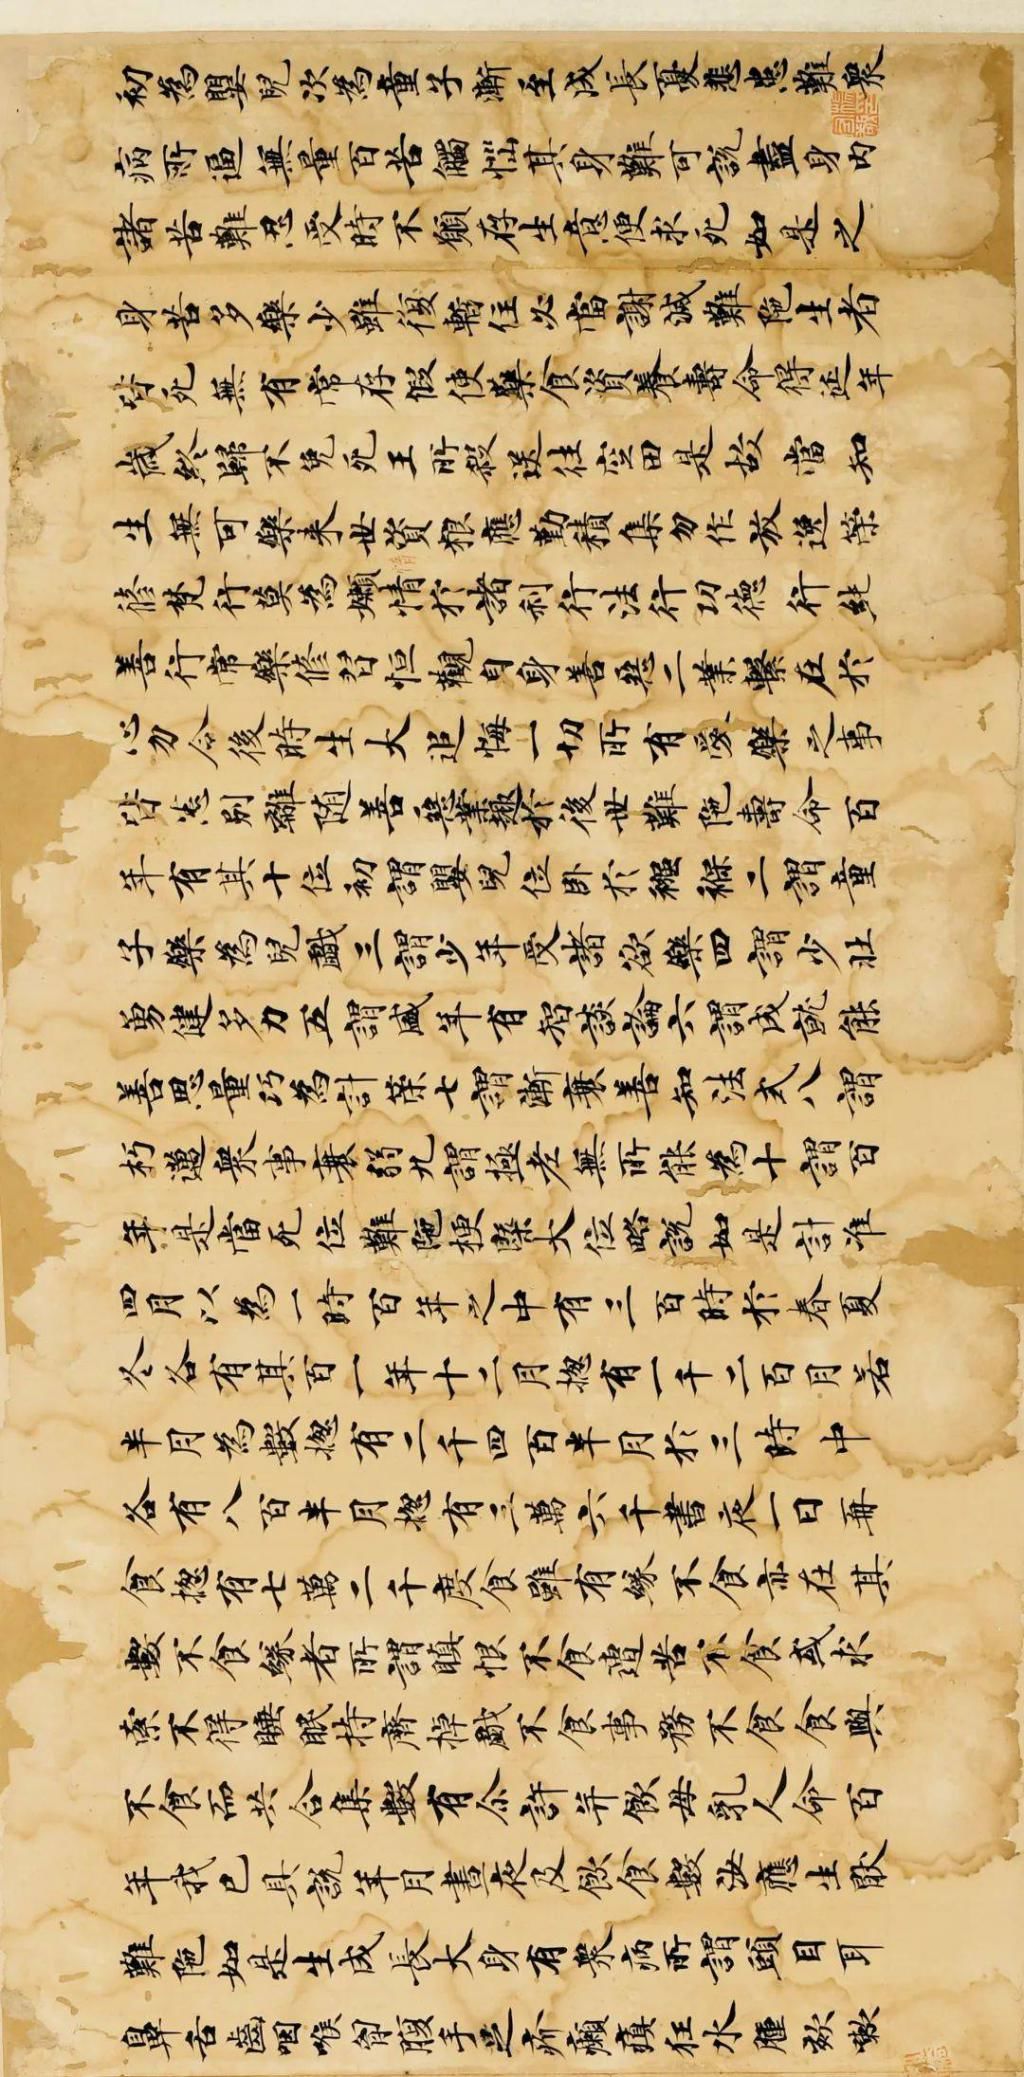 初為嬰兒次為童子漸至成長憂悲患難衆
病所逼無量百苦觸惱其身難可說盡身內
諸苦難忍受時不願存生意便求死如是之
身苦多樂少雖復暫住必當謝滅難陁生者
皆死無有常存假使藥食資養壽命得延年
歲終歸不免死王所殺送往空田是故當知
生無可樂来世資粮應勤積集勿作放逸策
修梵行莫為嬾惰於諸利行法行功德行純
善行常樂修習恒觀自身善惡二業繫在於
心勿令後時生大追悔一切所有愛樂之事
皆悉別離随善惡業趣於後世難陁壽命百
年有其十位初謂嬰兒位卧於襁褓二謂童
子樂為兒戲三謂少年受諸欲樂四謂少壯
勇健多力五謂盛年有智談論六謂成就能
善思量巧為計策七謂漸衰善知法式八謂
朽邁衆事衰弱九謂極老無所能為十謂百
年是當死位難陁梗槩大位略說如是計准
四月以為一時百年之中有三百時於春夏
冬各有其百一年十二月惣有一千二百月若
半月為數惣有二千四百半月於三時中
各有八百半月惣有三萬六千晝夜一日再
食惣有七萬二千度食雖有緣不食亦在其
數不食緣者所謂瞋恨不食遭苦不食或求
索不得睡眠持齋掉戲不食事務不食食與
不食而共合集數有尒許并飲母乳人命百
年我已具說年月晝夜及飲食數汝應生猒
難陁如是生成長大身有衆病所謂頭目耳
鼻舌齒咽喉胷腹手足疥癩癲狂水腫欬嗽